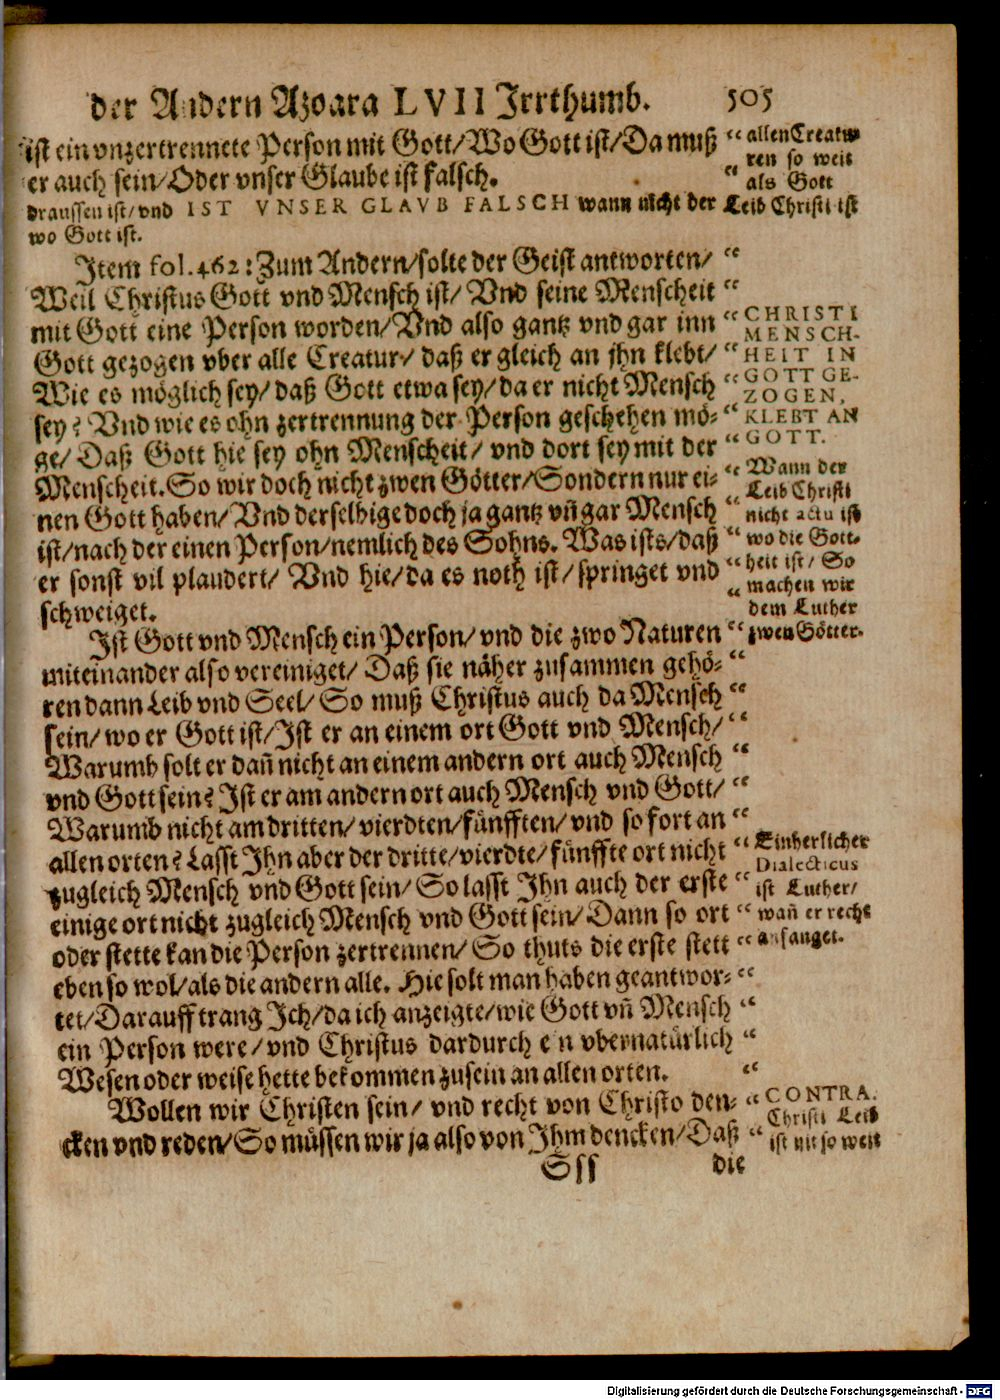 der Andern Azoara LVII Irrthumb. 505
ist ein vnzertrennete Person mit Gott/ Wo Gott ist/ Da muß “
er auch sein/ Oder vnser Glaube ist falsch. “
allen Creatu-
ren so weit
als Gott
draussen ist/ vnd IST VNSER GLAVB FALSCH wann nicht der Leib Christi ist
wo Gott ist.
Item fol. 462: Zum Andern/ solte der Geist antworten/ “
Weil Christus Gott vnd Mensch ist/ Vnd seine Menscheit “
mit Gott eine Person worden/ Vnd also gantz vnd gar inn “
Gott gezogen vber alle Creatur/ daß er gleich an jhn klebt/ “
Wie es möglich sey/ daß Gott etwa sey/ da er nicht Mensch “
sey? Vnd wie es ohn zertrennung der Person geschehen mö- “
ge/ Daß Gott hie sey ohn Menscheit/ vnd dort sey mit der “
Menscheit. So wir doch nicht zwen Götter/ Sondern nur ei- “
nen Gott haben/ Vnd derselbige doch ja gantz vñ gar Mensch “
ist/ nach der einen Person/ nemlich des Sohns. Was ists/ daß “
er sonst vil plaudert/ Vnd hie/ da es noth ist/ springet vnd “
schweiget. “
CHRISTI
MENSCH-
HEIT IN
GOTT GE-
ZOGEN,
KLEBT AN
GOTT.
Wann der
Leib Christi
nicht actu ist
wo die Gott-
heit ist/ So
machen wir
dem Luther
zwen Götter.
Ist Gott vnd Mensch ein Person/ vnd die zwo Naturen “
miteinander also vereiniget/ Daß sie näher zusammen gehö- “
ren dann Leib vnd Seel/ So muß Christus auch da Mensch “
sein/ wo er Gott ist/ Ist er an einem ort Gott vnd Mensch/ “
Warumb solt er dañ nicht an einem andern ort auch Mensch “
vnd Gott sein? Ist er am andern ort auch Mensch vnd Gott/ “
Warumb nicht am dritten/ vierdten/ fünfften/ vnd so fort an “
allen orten? Lasst Ihn aber der dritte/ vierdte/ fünffte ort nicht “
zugleich Mensch vnd Gott sein/ So lasst Ihn auch der erste “
einige ort nicht zugleich Mensch vnd Gott sein/ Dann so ort “
oder stette kan die Person zertrennen/ So thuts die erste stett “
eben so wol/ als die andern alle. Hie solt man haben geantwor- “
tet/ Darauff trang Ich/ da ich anzeigte/ wie Gott vñ Mensch “
ein Person were/ vnd Christus dardurch e n vbernatürlich “
Wesen oder weise hette bekommen zusein an allen orten. “
Einherlicher
Dialecticus
ist Luther/
wañ er recht
anfanget.
Wollen wir Christen sein/ vnd recht von Christo den- “
cken vnd reden/ So müssen wir ja also von Ihm dencken/ Daß “
CONTRA.
Christi Leib
ist nit so weit
Sss die
Digitalisierung gefördert durch die Deutsche Forschungsgemeinschaft - DFG